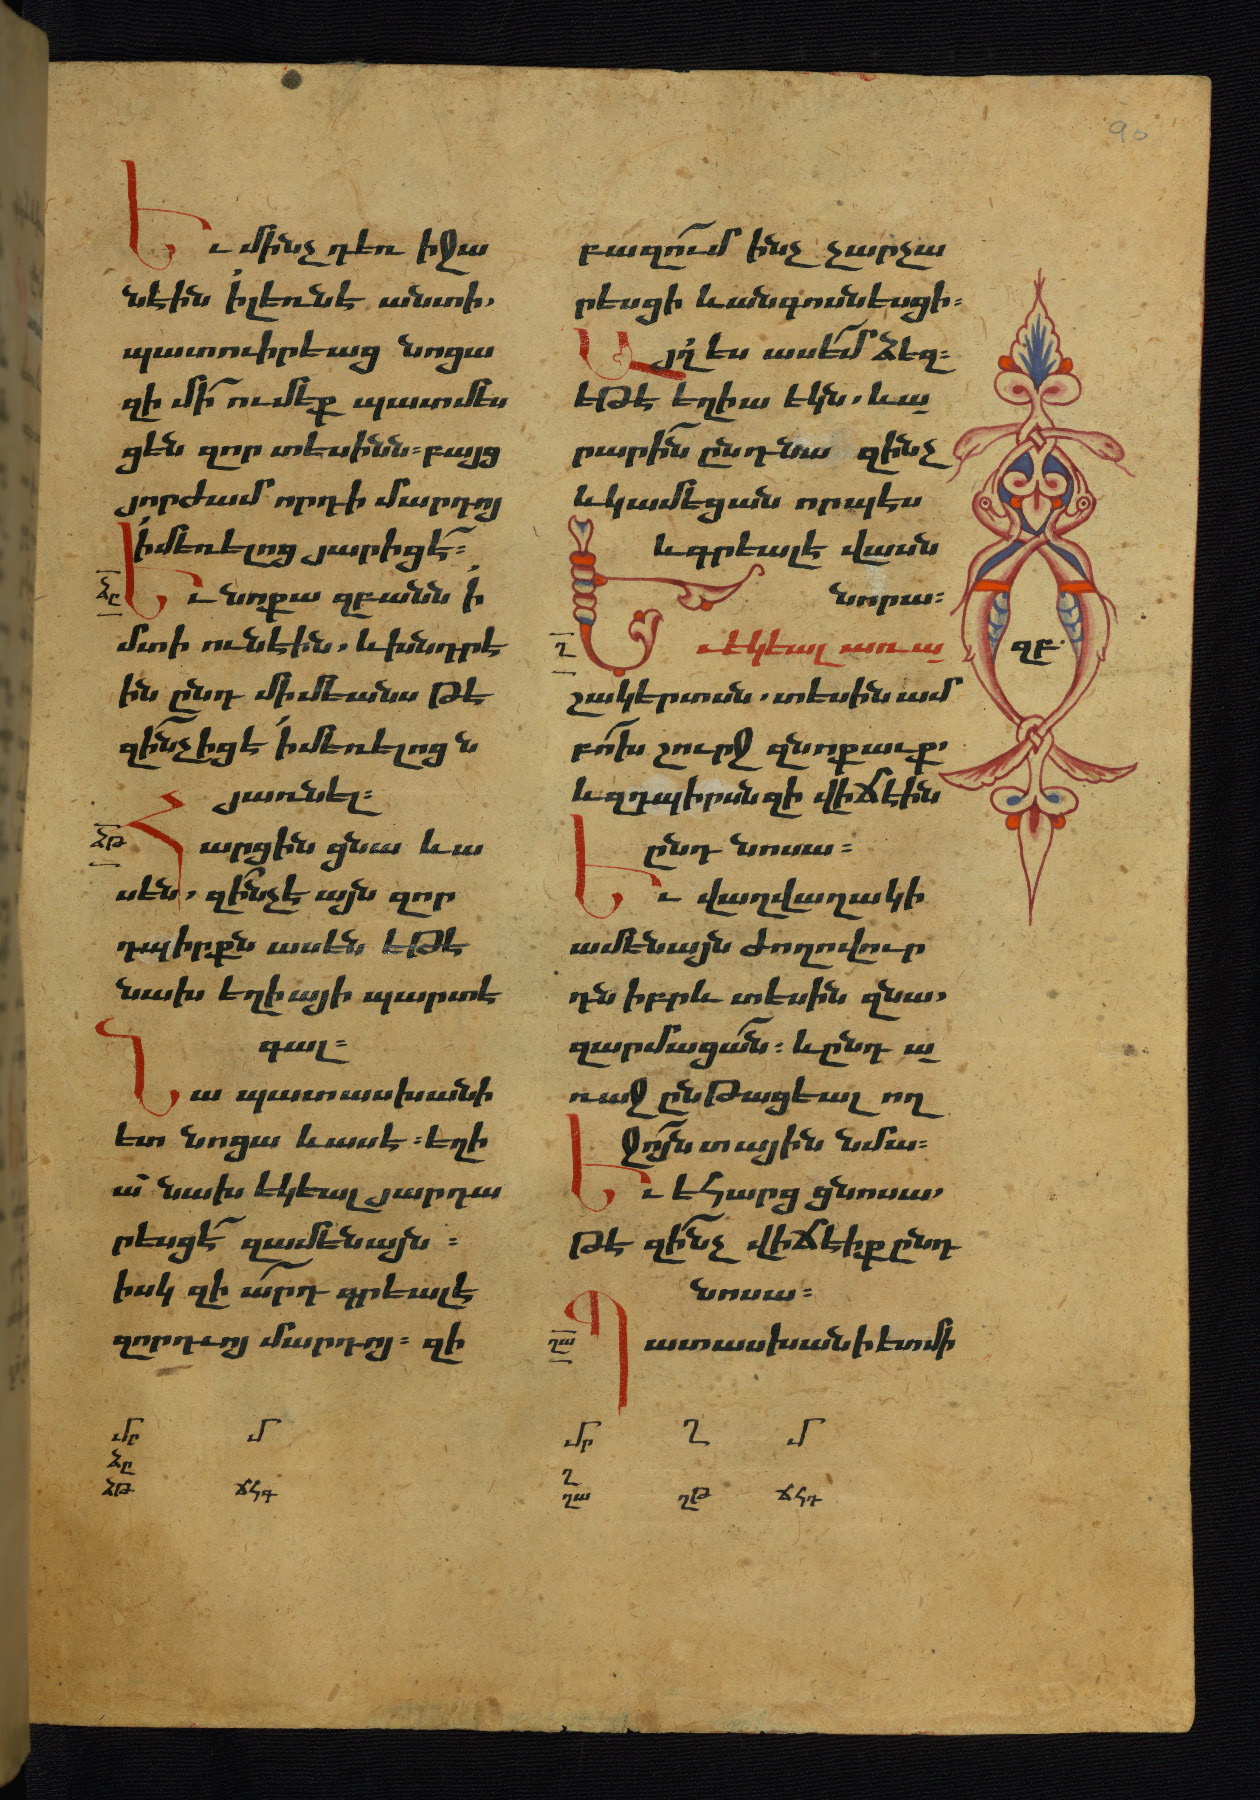 90
Եւ մինչ դեռ իջա
նէին ի լեռնէ անտի,
պատուիրեաց նոցա
զի մի՛ ումեք պատմես
ցեն զոր տեսինն։ բայց
յորժամ որդի մարդոյ
ի մեռելոց յարիցէ՛։
ՁԸ
Եւ նոքա զբանն ի
մտի ունէին, և խնդրէ
ին ընդ միմեանս թէ
զի՞նչ իցէ ի մեռելոցն
յառնել։
ՁԹ
Հարցին ցնա և ա
սեն, զի՞նչ է այն զոր
դպիրքն ասեն եթէ
նախ եղիայի պարտէ
գալ։
Նա պատասխանի
ետ նոցա և ասէ։ եղի
ա՛ նախ եկեալ յարդա
րեսցէ՛ զամենայն։
իսկ զի ա՞րդ գրեալ է
զորդւոյ մարդոյ։ զի
բազո՛ւմ ինչ չարչա
րեսցի և անգոսնեսցի։
Այլ ես ասե՛մ ձեզ։
եթէ եղիա եկն, և ա
րարի՛ն ընդ նա զինչ
և կամեցան որպես
և գրեալ է վասն
նորա։
Ղ
Եւ եկեալ առ ա
շակերտսն, տեսին ամ
բո՛խ շուրջ զնոքաւք,
և զդպիրսն զի վիճէին
ընդ նոսա։
Եւ վաղվաղակի
ամենայն ժողովուր
դն իբրև տեսին զնա,
զարմացա՛ն։ և ընդ ա
ռաջ ընթացեալ ող
ջո՛յն տային նմա։
Եւ եհարց ցնոսա,
թէ զի՞նչ վիճէիք ընդ
նոսա։
ՂԱ
Պատասխանի ետ մի
ԶԲ
ՄԸ Մ
ՁԸ
ՁԹ ՃՀԳ
ՄԸ Ղ Մ
Ղ
ՂԱ ՂԹ ՃՀԴ